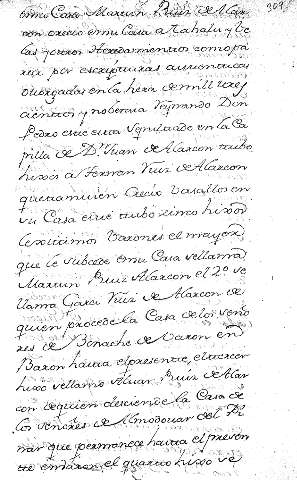 309
en su Casa Martin Ruiz de Alar
con crecio en su Casa a Rahalu y Be
las y otros Heredamientos como pa
reze por escripturas autenticas
otorgadas en la hera de mill y tres
cientos y noventa reynando Don
Pedro este esta sepultado en la Ca
pilla de Dn Juan de Alarcon tubo
hixo a Fernan Ruiz de Alarcon
que tamuien Crecio Vasallos en
su Casa este tubo cinco hixos
lexitimos Varones el mayor
que le subcede en su Casa se llama
Martin Ruiz Alarcon el 2º se
llama Garci Ruiz de Alarcon de
quien procede la Casa de los seño
res de Benache de Varon en
Baron hasta el presente, el tercer
hixo se llamo Aluar Ruiz de Alar
con de quien desciende la Casa de
los señores de Almodouar del Pi
nar que permanece hasta el presen
te en Varon el quarto hixo se